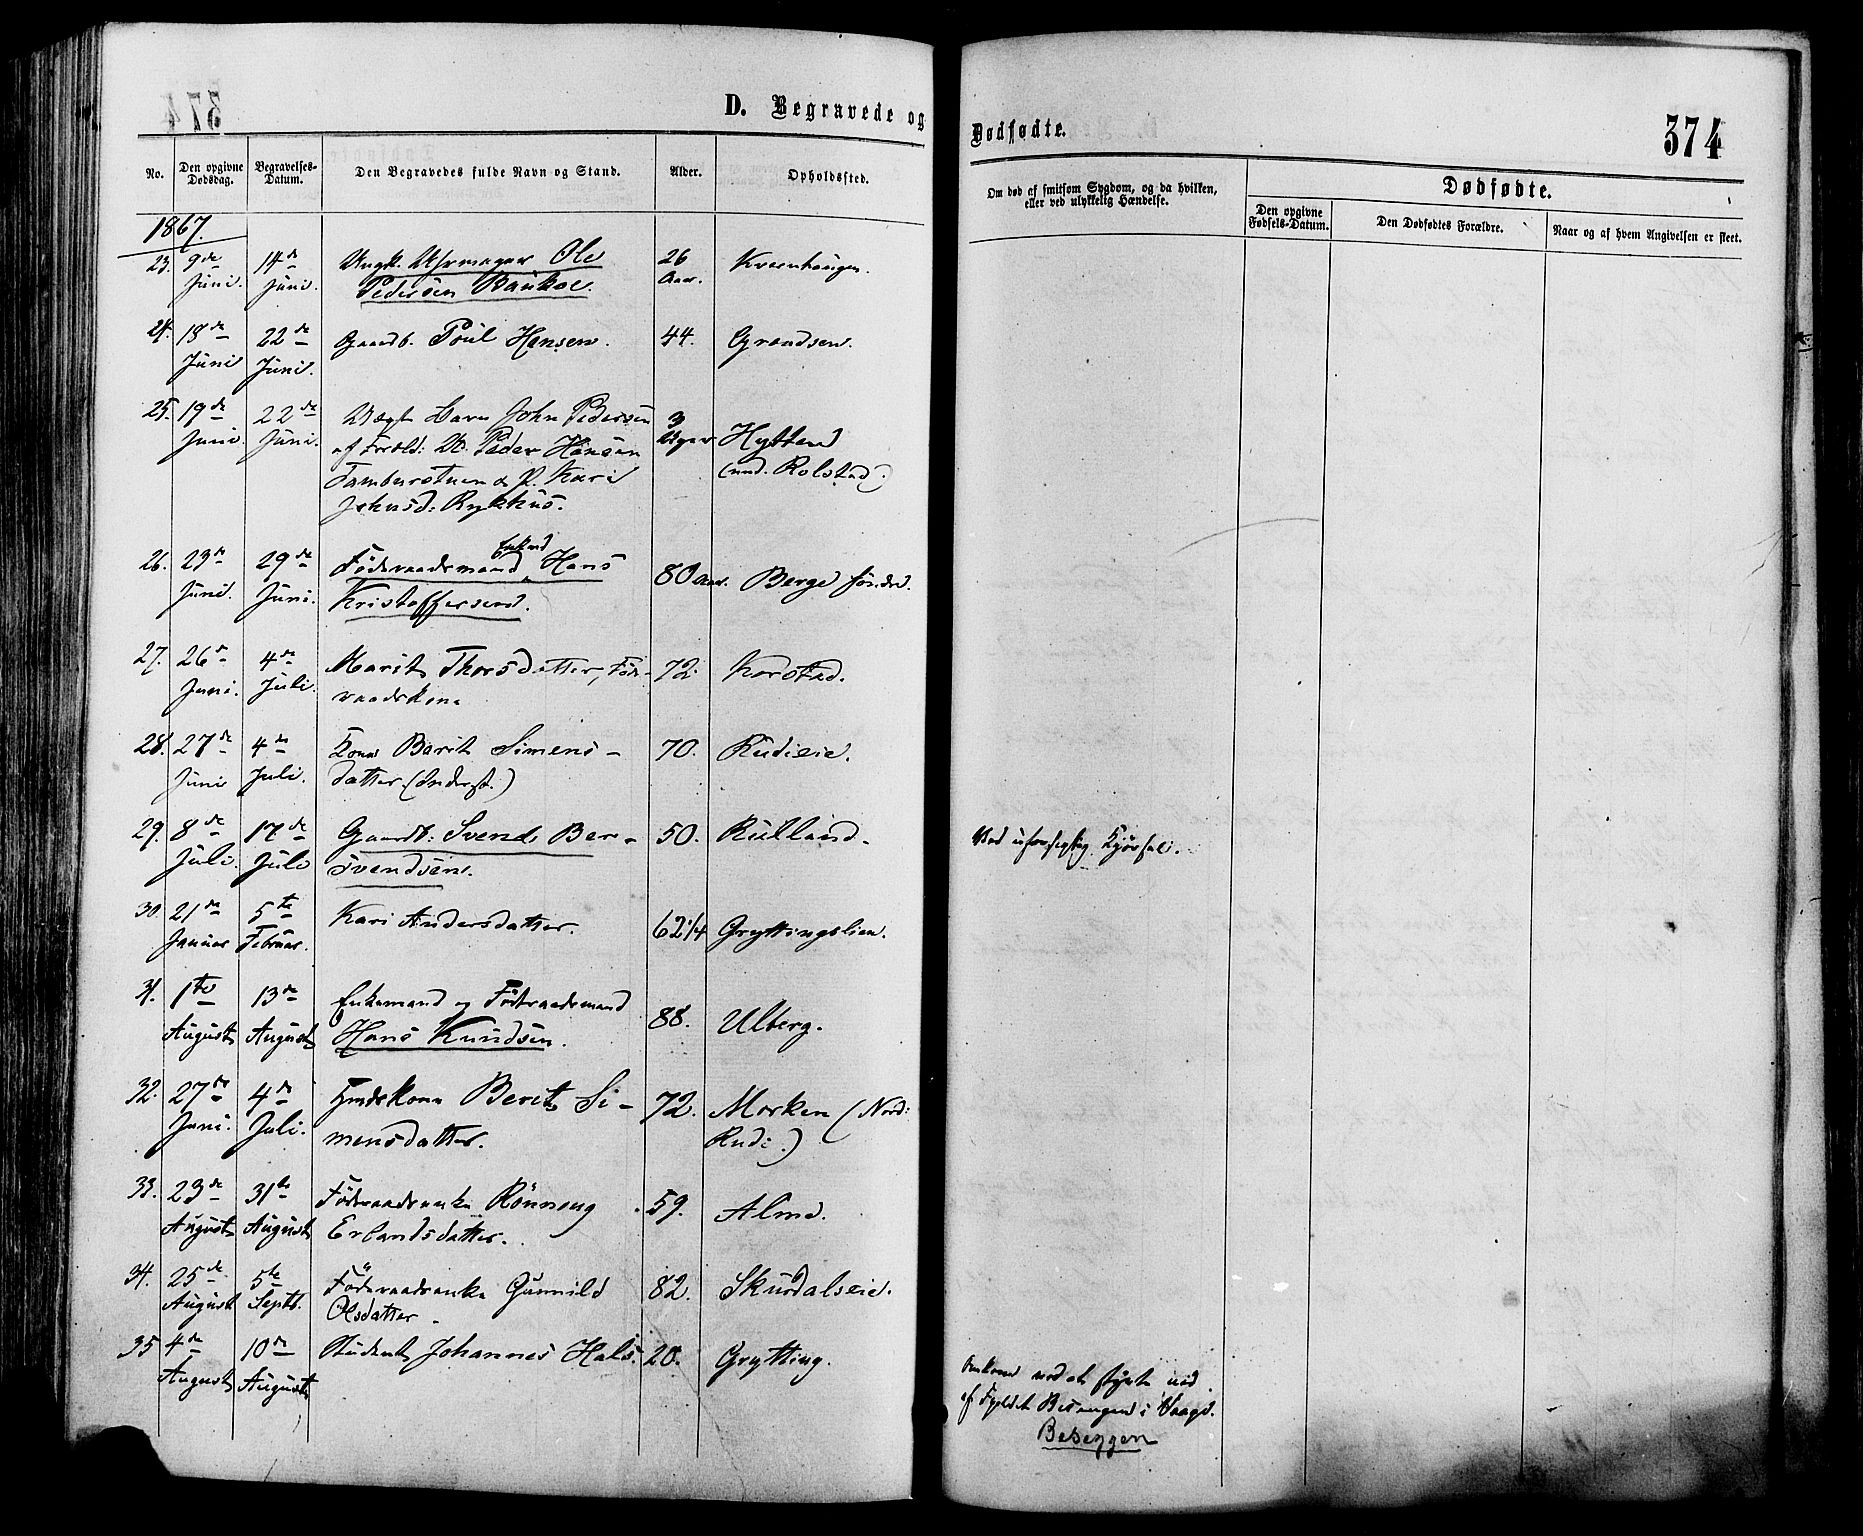 374
D. Begravede og
Dødfødte.
374
No.
Den opgivne Dødsdag.
Begravelses-Datum.
Den Begravedes fulde Navn og Stand.
Alder.
Opholdssted.
Om død af smitsom Sygdom, og da hvilken,
eller ved ulykkelig Hændelse.
Dødfødte.
Den opgivne Fødsels-Datum.
Den Dødfødtes Forældre.
Naar og af hvem Angivelsen er skeet.
1867.
23. 9de 14de Ungk. Uhrmager Ole 26 Kvernhougen.
Juni. Juni. Pedersen Baukol. Aar.
24. 18de 22de Gaardb. Poul Hansen. 44. Grandsen.
Juni Juni.
25. 19de 22de Uægt Barn John Pedersen 3
Juni. Juni. af Foræld: U. Peder Hansen Uger Hytten
Tamburstuen & P. Kari (und. Rolstad)
Johnsd. Rykhus.
Enkemd
26. 23de 29de Föderaadsmand Hans 80 Aar. Berge söndre.
Juni. Juni. Kristoffersen.
27. 26de 4de Marit Thorsdatter, Föde- 72. Korstad.
Juni. Juli. raadskone
28. 27de 4de Kone Barit Simens- 70. Rudieie.
Juni Juli. datter (Inderst.)
29. 8de 17de Gaardb: Svend Ber- 50. Rulland. Ved uforsigtig Kjörsel.
Juli. Juli svendsen.
30. 21de 5te Kari Andersdatter. 62 1/4 Gryttingslien.
Januar Februar.
31. 1ste 13de Enkemand og Föderaadsmand
August August Hans Knudsen. 88. Ulberg.
32. 27de 4de Huskone Berit Si- 72. Morken (Nord:
Juni. Juli. mensdatter. Rudi.)
33. 23de 31te Föderaadsenke Rönnoug 59. Alme.
August August Erlandsdatter.
34. 25de 5te Föderaadsenke Gunnild 82. Skurdalseie.
August Septb. Olsdatter
35 4de 10de Student Johannes Hals. 20. Grytting.
August August
Omkom ved at styrte ned
af Fjeldet Besengen i Vaage.
Beseggen